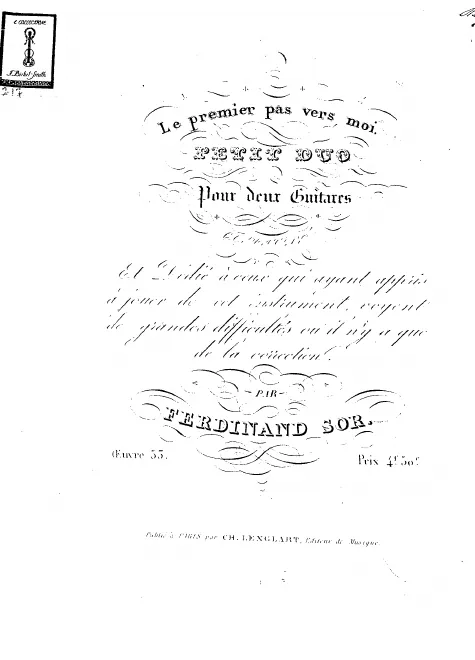 E COLLECTIONE
J. Rickel-Smith
217
Le premier pas vers moi.
PETIT DUO
Pour deux Guitares
Et Dédié à ceux qui ayant appris
à jouer de cet instrument, voyent
de grandes difficultés où il n'y a que
de la correction.
PAR
FERDINAND SOR.
Œuvre 53.
Prix 4f 50c
Publié à PARIS par CH. LENGLART, Editeur de Musique.